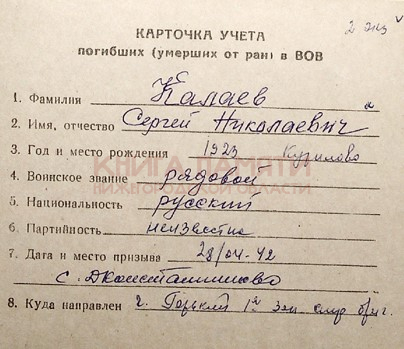 2 экз
КАРТОЧКА УЧЕТА
погибших (умерших от ран) в ВОВ
1. Фамилия Калаев
2. Имя, отчество Сергей Николаевич
3. Год и место рождения 1923 Курилово
КНИГА ПАМЯТИ
4. Воинское звание рядовой
НИЖЕГОРОДСКОЙ ОБЛАСТИ
5. Национальность русский
6. Партийность неизвестно
7. Дата и место призыва 28/04-42
с. Дконстантиново
8. Куда направлен г. Горький 1й зап стр бриг.